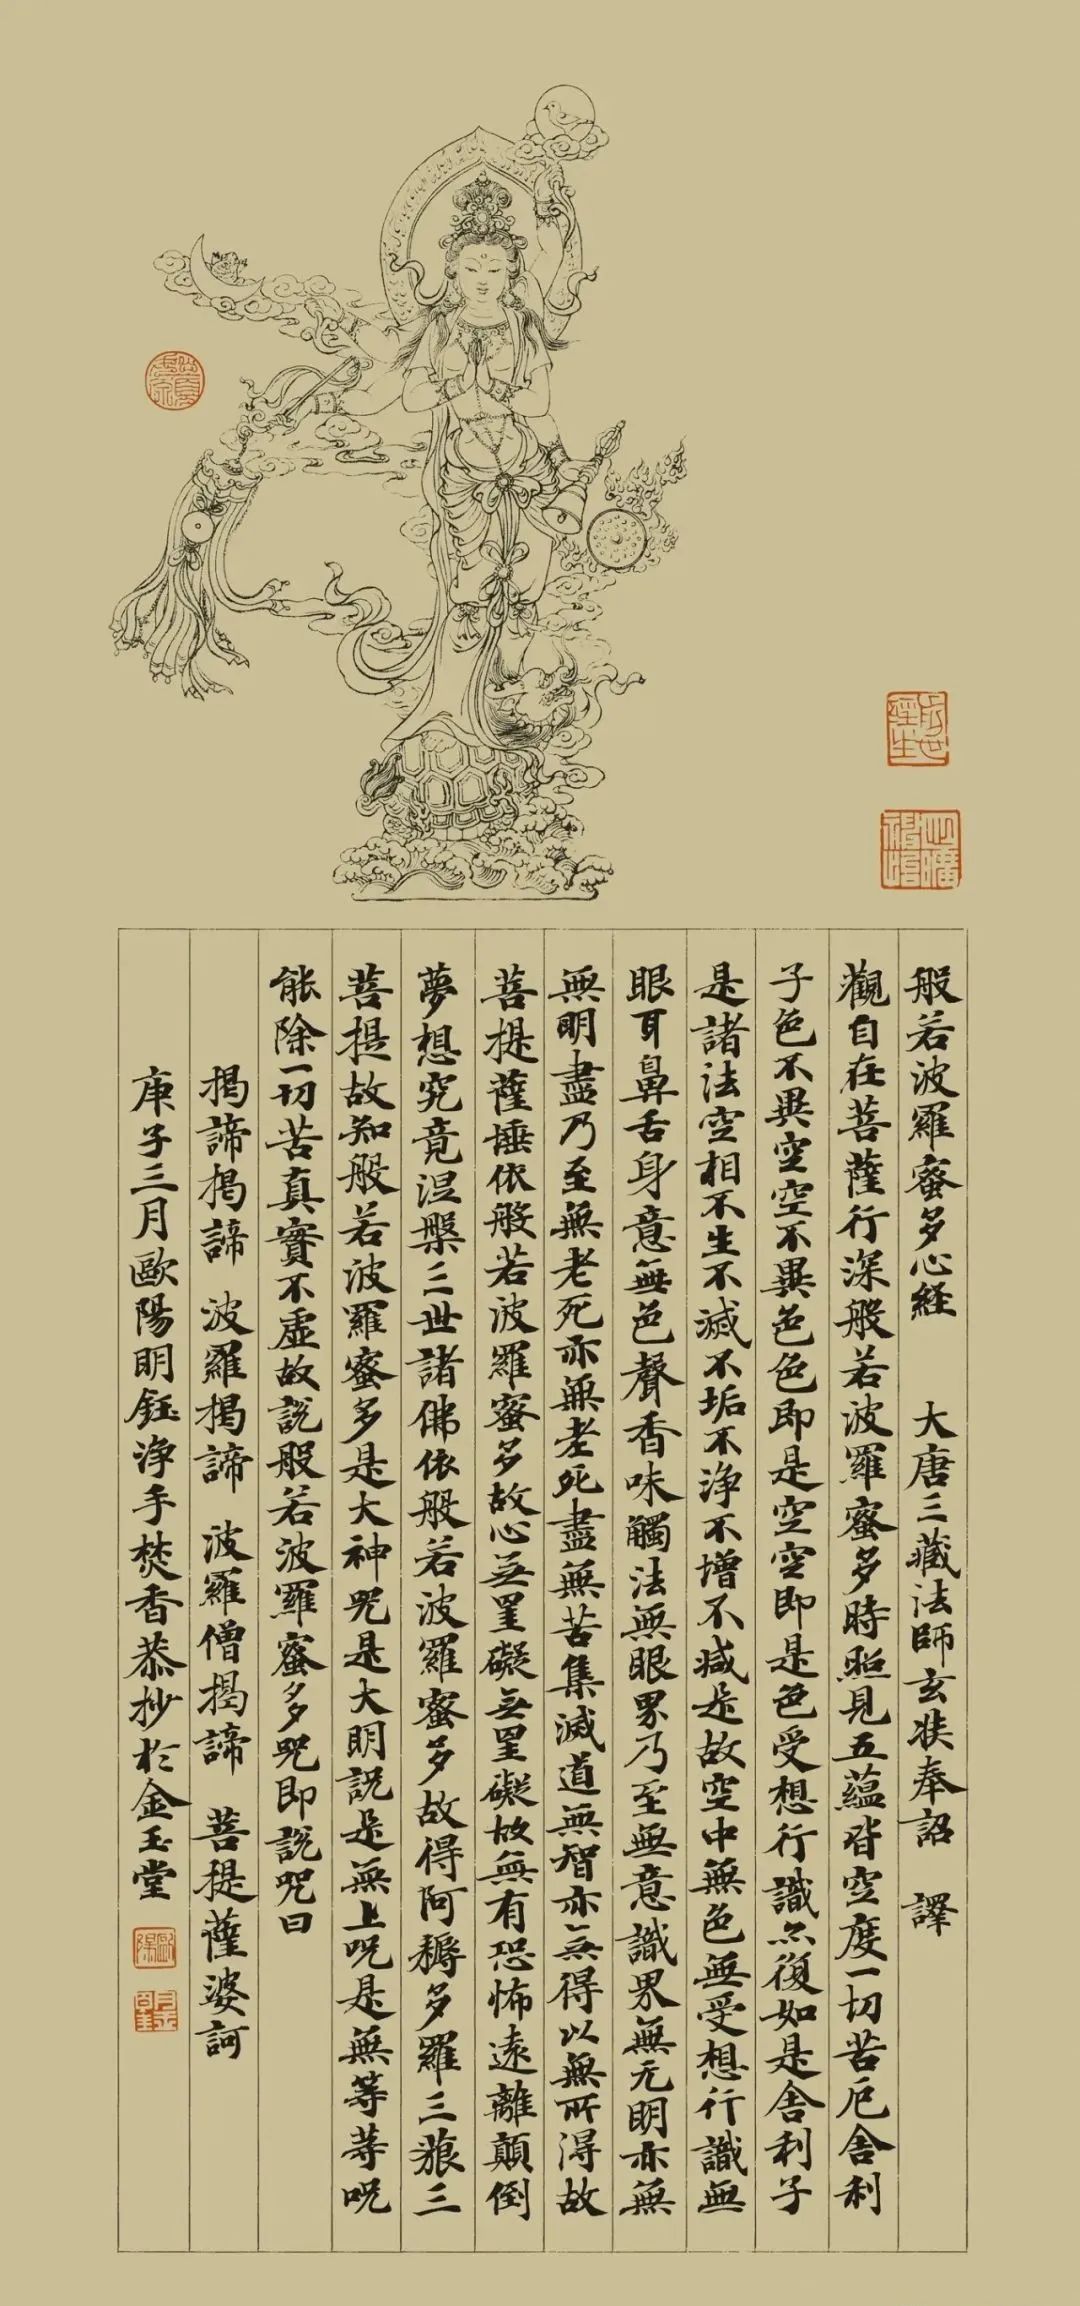 般若波羅蜜多心経 大唐三藏法師玄奘奉詔 譯
觀自在菩薩行深般若波羅蜜多時照見五蘊皆空度一切苦厄舍利
子色不異空空不異色色即是空空即是色受想行識亦復如是舍利子
是諸法空相不生不滅不垢不淨不增不減是故空中無色無受想行識無
眼耳鼻舌身意無色聲香味觸法無眼界乃至無意識界無无明亦無
無明盡乃至無老死亦無老死盡無苦集滅道無智亦无得以無所得故
菩提薩埵依般若波羅蜜多故心无罣礙无罣礙故無有恐怖遠離顛倒
夢想究竟涅槃三世諸佛依般若波羅蜜多故得阿耨多羅三藐三
菩提故知般若波羅蜜多是大神咒是大明説是無上呪是無等等呪
能除一切苦真實不虛故説般若波羅蜜多咒即説咒曰
揭諦揭諦 波羅揭諦 波羅僧揭諦 菩提薩婆訶
庚子三月歐陽明鈺淨手焚香恭抄於金玉堂